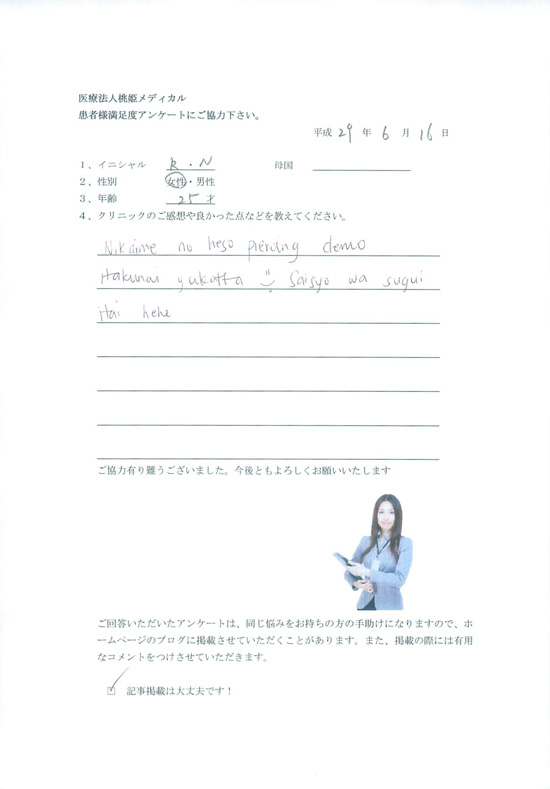 医療法人桃姫メディカル
患者様満足度アンケートにご協力下さい。
平成 29 年 6 月 16 日
1、イニシャル R.N 母国
2、性別 女性・男性
3、年齢 25才
4、クリニックのご感想や良かった点などを教えてください。
Nikaime no heso piercing demo
Itakunai yukatta Saisyo wa sugui
Itai hehe
ご協力有り難うございました。今後ともよろしくお願いいたします
ご回答いただいたアンケートは、同じ悩みをお持ちの方の手助けになりますので、ホ
ームページのブログに掲載させていただくことがあります。また、掲載の際には有用
なコメントをつけさせていただきます。
☑ 記事掲載は大丈夫です！